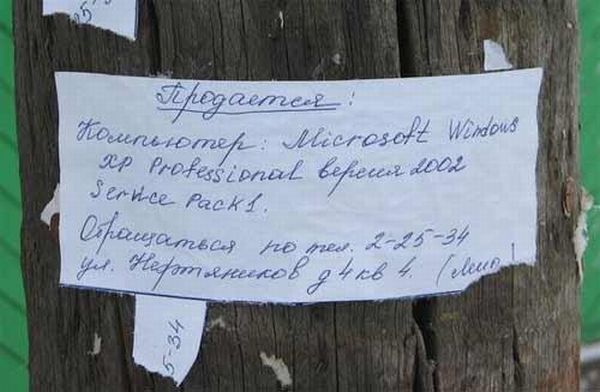 25
Продается:
Компьютер: Microsoft Windows
XP Professional версия 2002
Service Pack 1.
Обращаться по тел. 2-25-34
ул. Нефтяников д 4 кв 4.
5-34